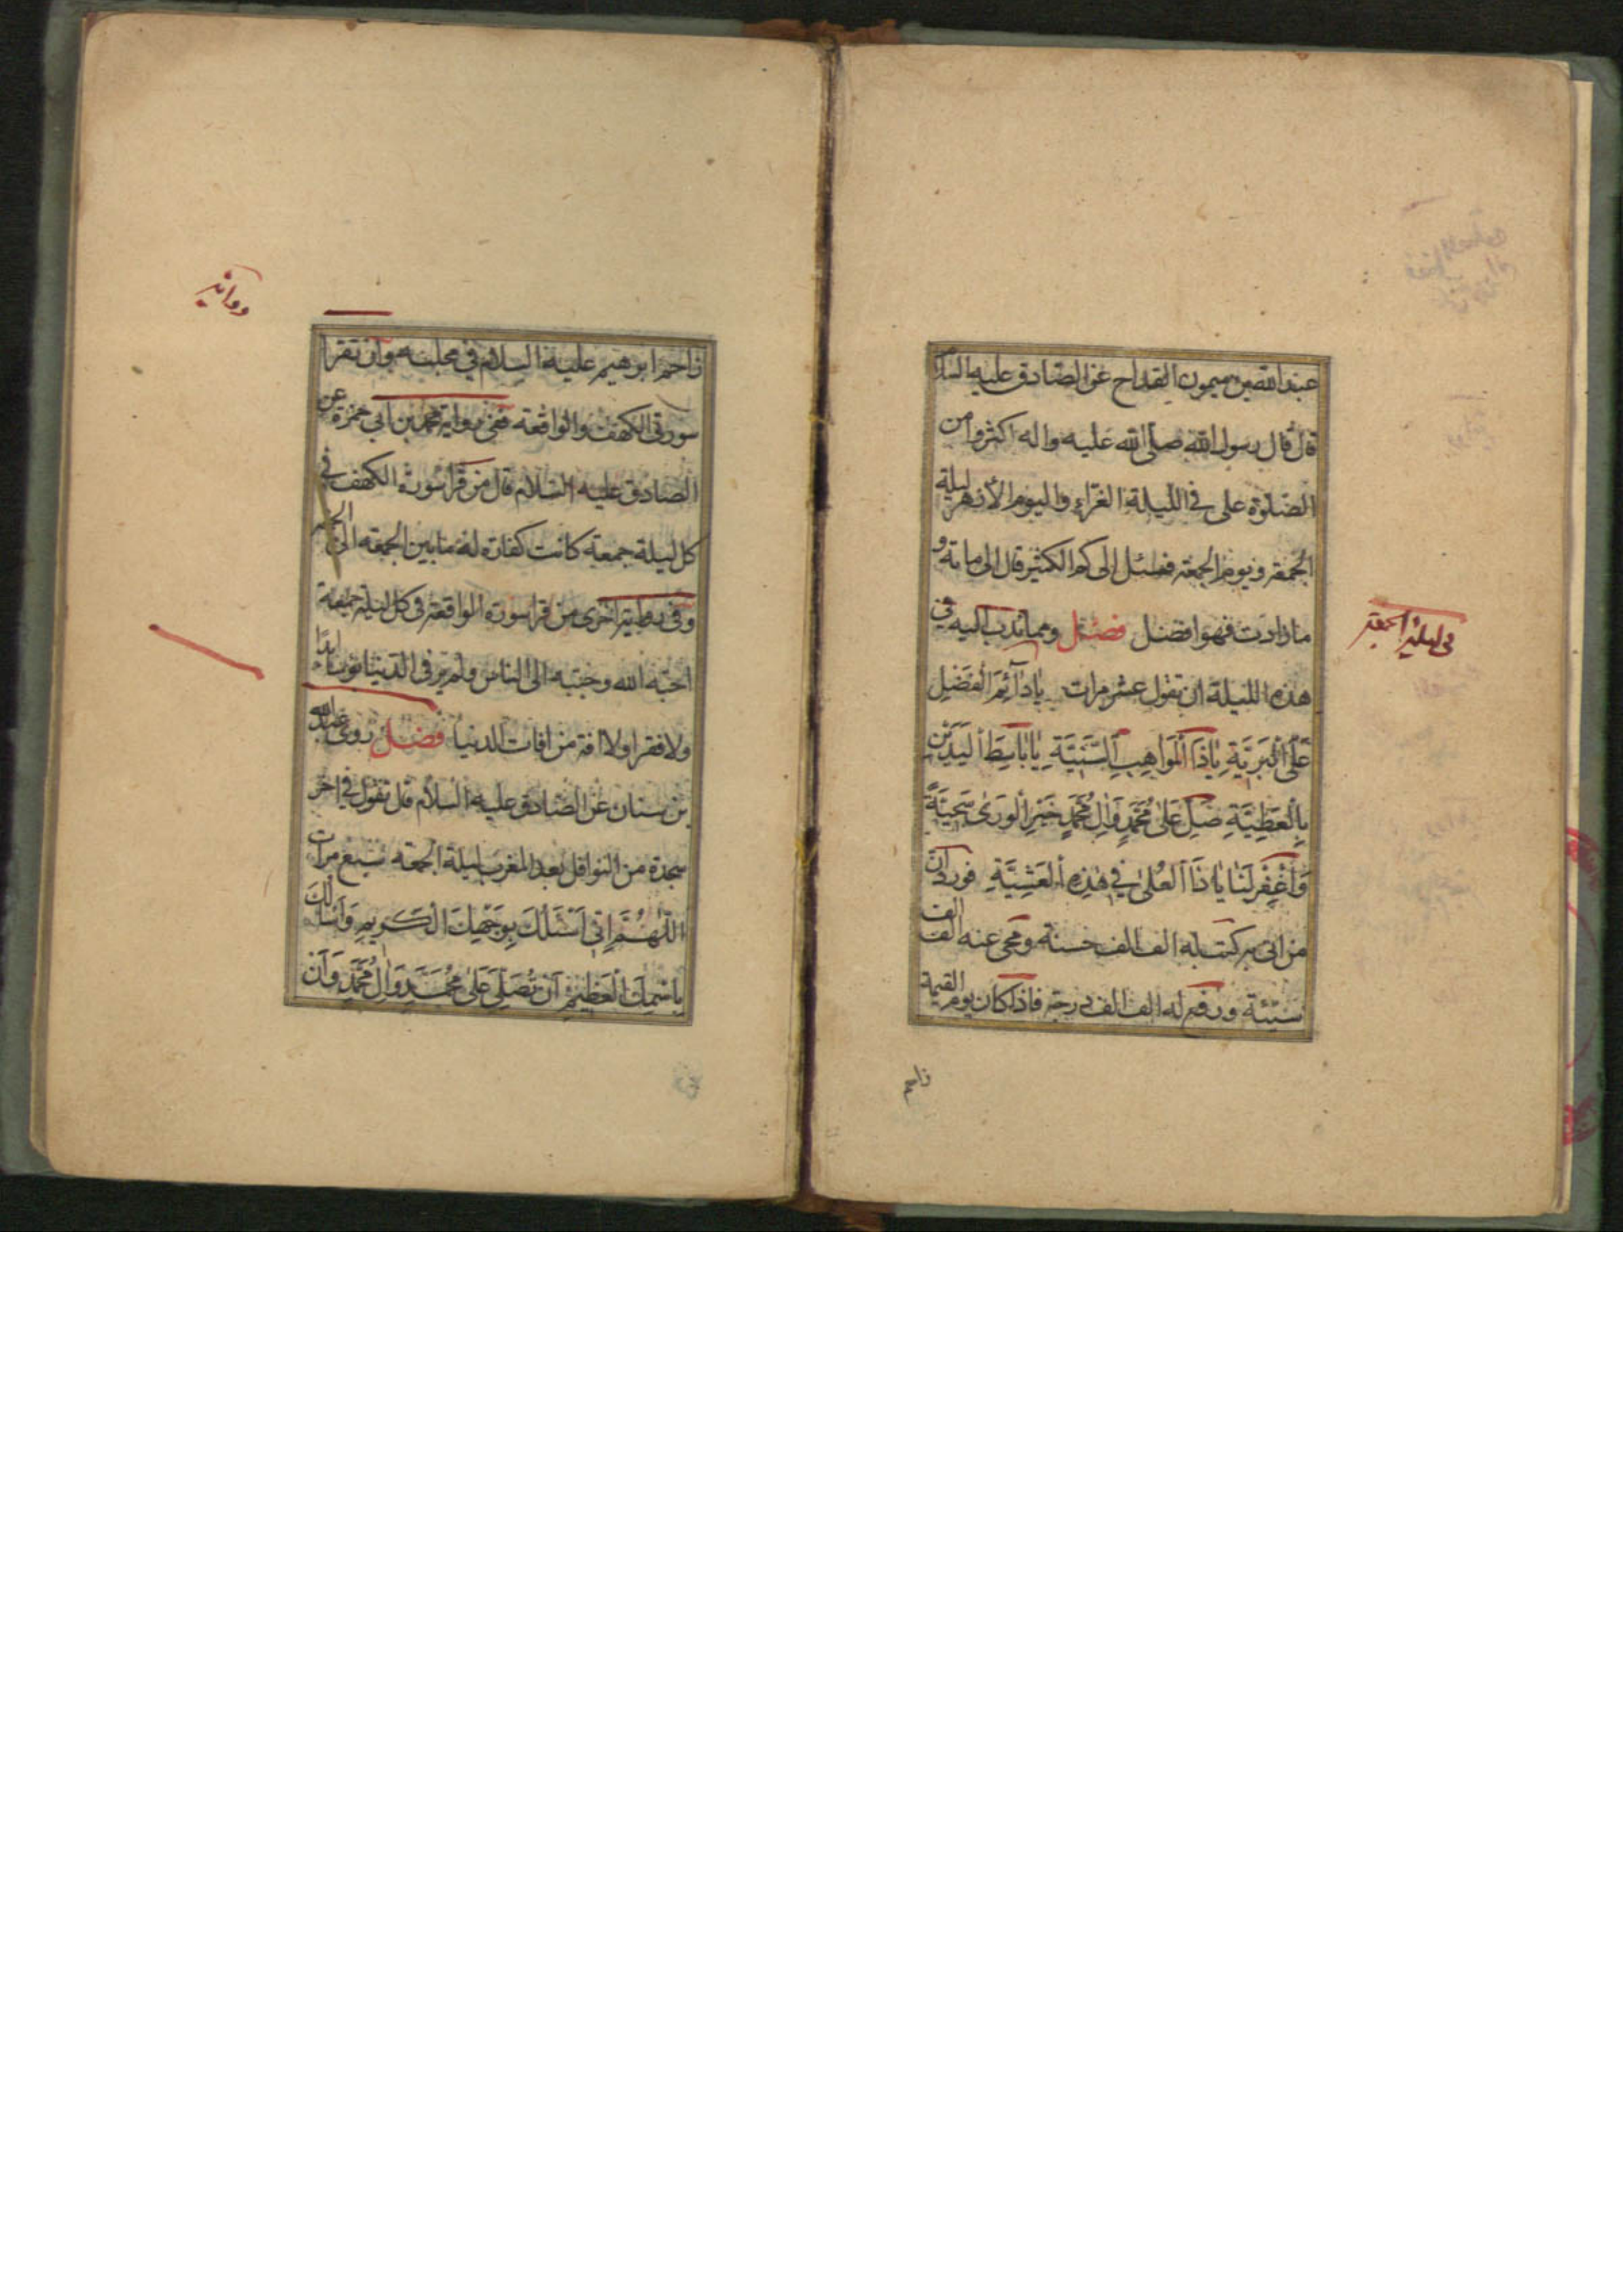 عبد الله بن ميمون القداح عن الصادق عليه السلام
قال قال رسول الله صلى الله عليه واله اكثروا من
الصلوة على في الليلة الغراء واليوم الازهر ليلة
الجمعة ويوم الجمعة فسئل الى كم الكثير قال الى مائة و
ما زادت فهو افضل فصل ومما يندب اليه في
هذه الليلة ان تقول عشر مرات يَا دَآئِمَ الْفَضْلِ
عَلَى الْبَرِيَّةِ يَا ذَا الْمَوَاهِبِ السَّنِيَّةِ يَا بَاسِطَ الْيَدَيْنِ
بِالْعَطِيَّةِ صَلِّ عَلَى مُحَمَّدٍ وَآلِ مُحَمَّدٍ خَيْرِ الْوَرَى سَجِيَّةً
وَاغْفِرْ لَنَا يَا ذَا الْعُلَى فِي هٰذِهِ الْعَشِيَّةِ فورد ان
من اتى به كتب له الف الف حسنة ومحى عنه الف الف
سيئة ورفع له الف الف درجة فاذا كان يوم القيمة
زاحم
فى ليلة الجمعة
زاحم ابرهيم عليه السلام في محلبسه وان تقرا
سورتي الكهف والواقعة ففي رواية محمد بن ابي حمزة عن
الصادق عليه السلام قال من قرا سورة الكهف في
كل ليلة جمعة كانت كفارة له ما بين الجمعه الى الجمعه
وفي رواية اخرى من قرا سورة الواقعة في كل ليلة جمعة
احبه الله وحببه الى الناس ولم ير في الدنيا بؤسا ابدا
ولا فقرا ولا افة من افات الدنيا فصل روى عبد الله
بن سنان عن الصادق عليه السلام قال تقول في اخر
سجدة من النوافل بعد المغرب ليلة الجمعه سبع مرات
اللّٰهُمَّ اِنِّي اَسْئَلُكَ بِوَجْهِكَ الْكَرِيمِ وَاَسْئَلُكَ
بِاسْمِكَ الْعَظِيمِ اَنْ تُصَلِّيَ عَلَى مُحَمَّدٍ وَآلِ مُحَمَّدٍ وَاَنْ